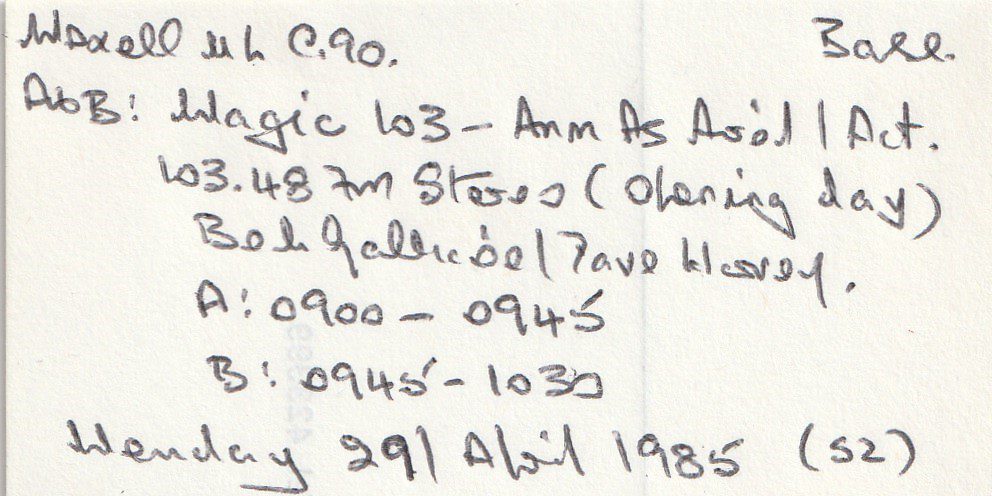 Maxell UL C.90. Base.
A&B: Magic 103 - Ann As Aróil / Act.
103.48 FM Stereo (Opening day)
Bob Gallico / Dave Harvey.
A: 0900 - 0945
B: 0945 - 1030
Monday 29 / April 1985 (S2)